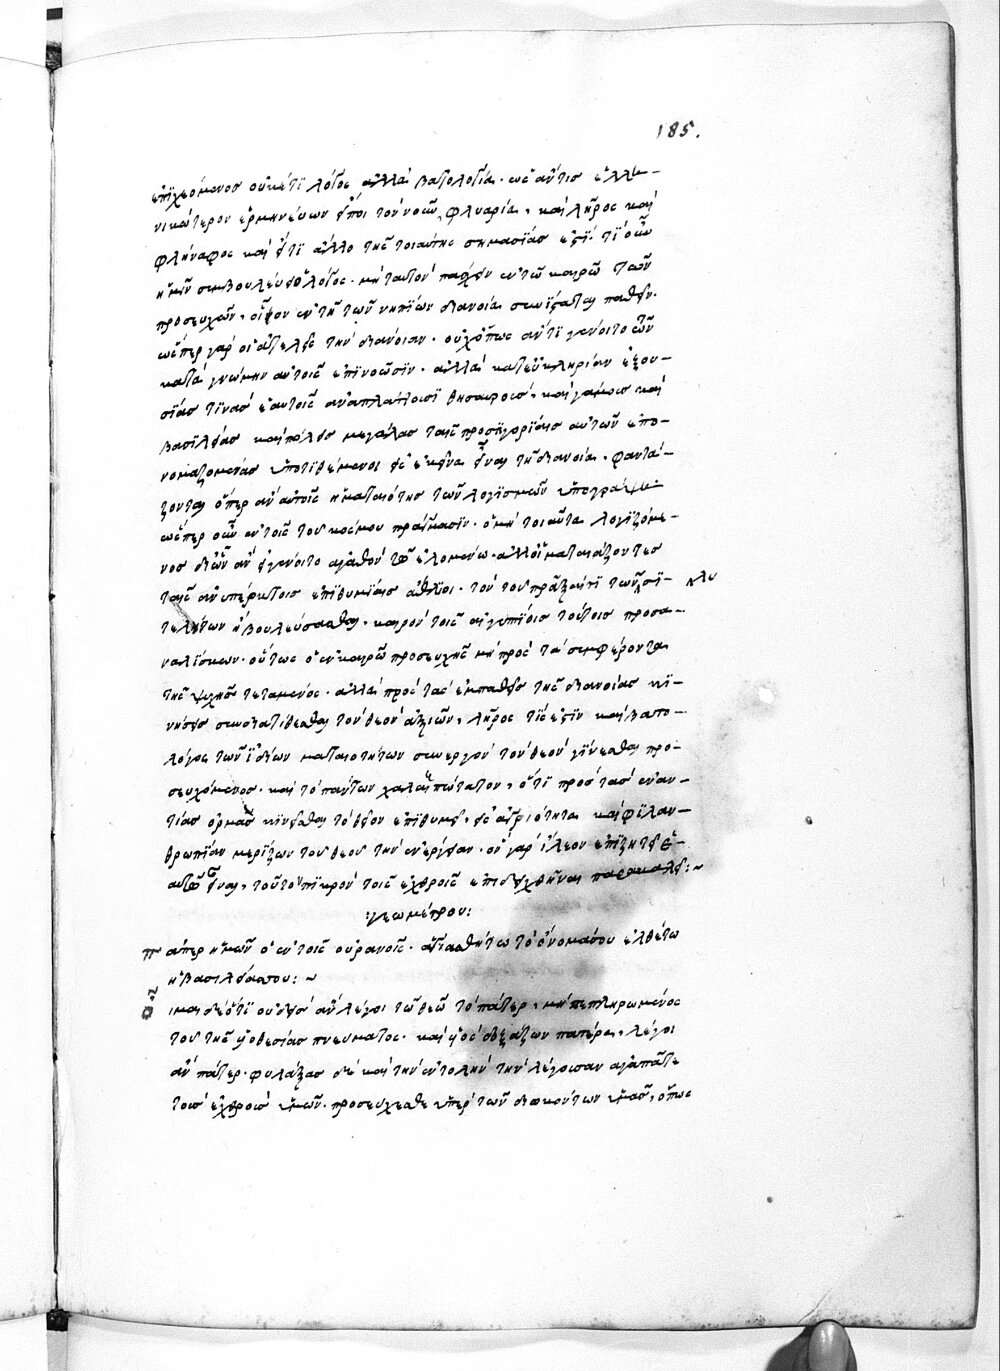 185.
ἐπιχεόμενος οὐκέτι λόγος ἀλλὰ βατολογία. ὡς ἄν τις ἑλλη-
νικώτερον ἑρμηνεύων εἴποι τὸν νοῦν, φλυαρία, καὶ λῆρος καὶ
φλήναφος καὶ εἴ τι ἄλλο τῆς τοιαύτης σημασίας ἐστί. τί οὖν
ἡμῖν συμβουλεύει ὁ λόγος. μὴ ταυτὸν παθεῖν ἐν τῷ καιρῷ τῶν
προσευχῶν, οἷον ἐν τῇ τῶν νηπίων διανοίᾳ συνίσταται παθεῖν.
ὥσπερ γὰρ οἱ ἀτελεῖς τὴν διάνοιαν. οὐχ ὅπως ἄν τι γένοιτο τῶν
κατὰ γνώμην αὐτοῖς ἐπινοῶσιν. ἀλλὰ κατευκληρίαν ἐξου-
σίας τινὰς ἑαυτοῖς ἀναπλάττουσι θησαυροὺς, καὶ γάμους καὶ
βασιλείας καὶ πόλεις μεγάλας ταῖς προσηγορίαις αὐτῶν ἐπο-
νομαζομένας ὑποτιθέμενοι εἰς ἐκεῖνα εἶναι τῇ διανοίᾳ. φαντά-
ζονται ὅπερ ἂν αὐτοῖς ἡ ματαιότης τῶν λογισμῶν ὑπογράψῃ
ὥσπερ οὖν ἐν τοῖς τοῦ κόσμου πράγμασιν. ὁ μὴ τοιαῦτα λογιζόμε-
νος δι' ὧν ἂν γένοιτο ἀγαθὸν τῷ ἑλομένῳ.
ταῖς ἀνυπάρκτοις ἐπιθυμίαις ἄθλιοι. τὸν τοῦ πρᾶξαί τι τῶν
τελούντων ἢ βουλεύσασθαι. καιρὸν τοῖς ἐνυπνίοις τούτοις προσα-
ναλίσκων. οὕτως ὁ ἐν καιρῷ προσευχῆς μὴ πρὸς τὰ συμφέροντα
τῆς ψυχῆς τεταμένος. ἀλλὰ πρὸς τὰς ἐμπαθεῖς τῆς διανοίας κι-
νήσεις συνδιατίθεσθαι τὸν θεὸν ἀξιῶν, λῆρος τίς ἐστιν καὶ βατο-
λόγος τῶν ἰδίων ματαιοτήτων συνεργὸν τὸν θεὸν γίνεσθαι προ-
σευχόμενος. καὶ τὸ πάντων χαλεπώτατον, ὅτι πρὸς τὰς ἐναν-
τίας ὁρμὰς κινεῖσθαι τὸ θεῖον ἐπιθυμεῖ, εἰς ἀγριότητα καὶ φιλαν-
θρωπίαν μερίζων τοῦ θεοῦ τὴν ἐνέργειαν. ὃν γὰρ ἵλεον ἐπιζητεῖ ἑ-
αυτῷ εἶναι, τοῦτο πικρὸν τοῖς ἐχθροῖς ἐπιδειχθῆναι παρακαλεῖ:~
γεωμέτρου:
πάτερ ἡμῶν ὁ ἐν τοῖς οὐρανοῖς. ἁγιασθήτω τὸ ὄνομά σου ἐλθέτω
ἡ βασιλεία σου:~
ιμαι δὲ ὅτι οὐδεὶς ἂν λέγοι τῷ θεῷ τὸ πάτερ, μὴ πεπληρωμένος
τοῦ τῆς υἱοθεσίας πνεύματος. καὶ υἱὸς δοξάζων πατέρα, λέγοι
ἂν πάτερ. φυλάξας δὲ καὶ τὴν ἐντολὴν τὴν λέγουσαν ἀγαπᾶτε
τοὺς ἐχθροὺς ὑμῶν. προσεύχεσθε ὑπὲρ τῶν διωκόντων ὑμᾶς, ὅπως